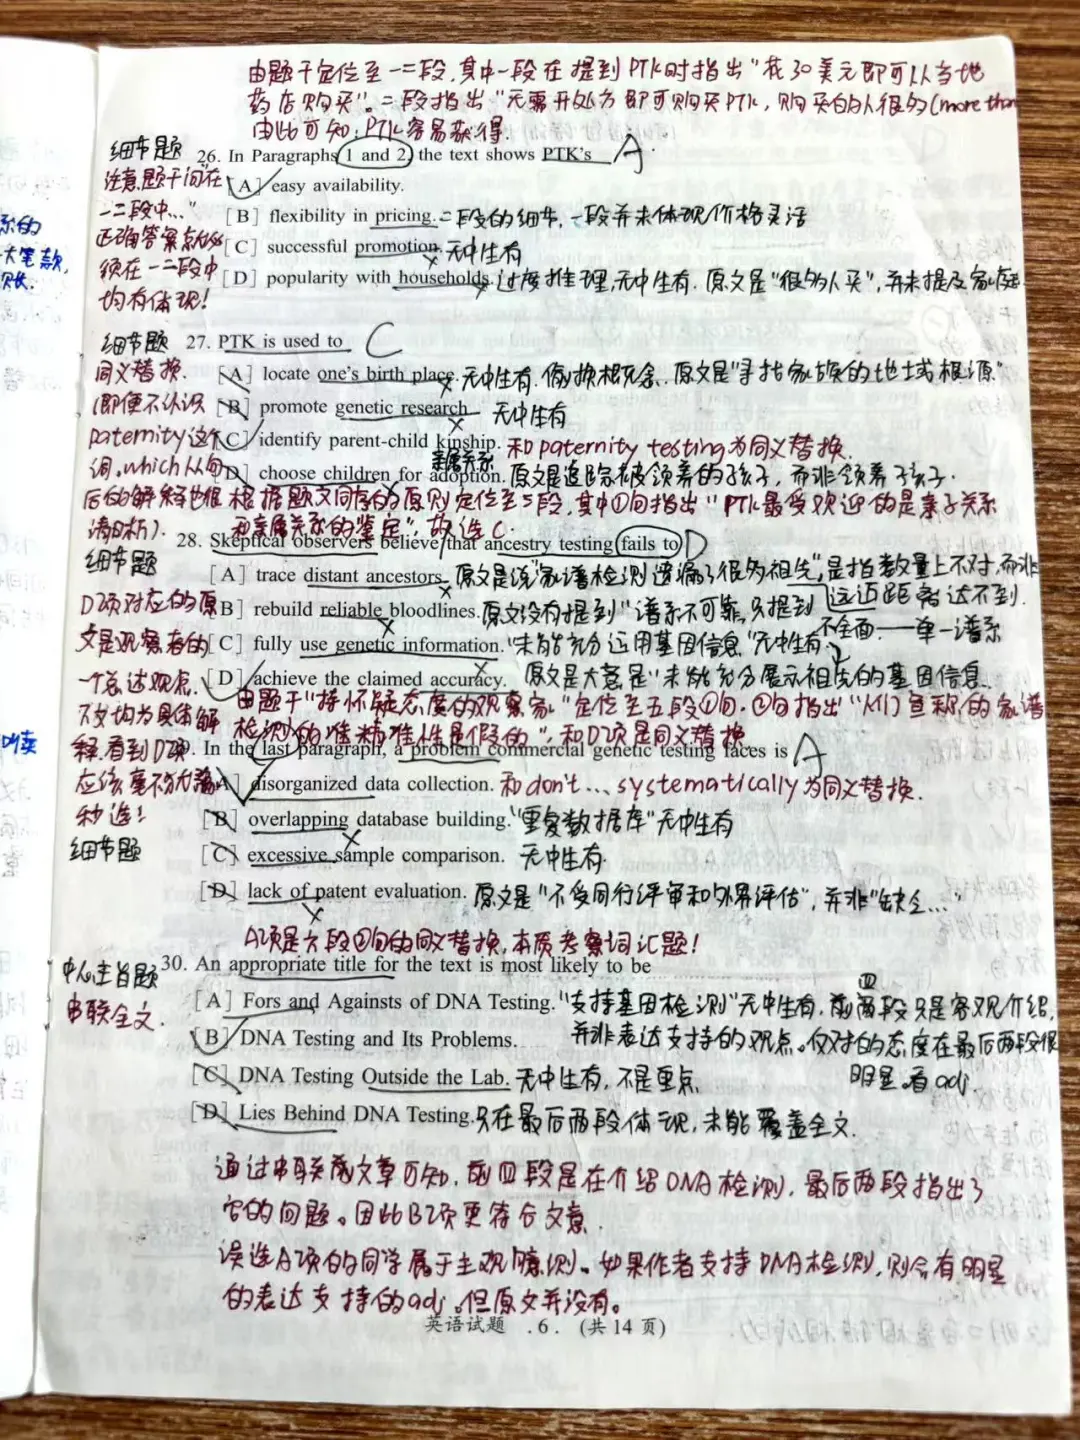 由题干定位至一二段,其中一段在提到PTK时指出"花30美元即可以从当地
药店购买"。二段指出"无需开处方即可购买PTK,购买的人很多(more than
由此可知,PTK容易获得.
细节题 26. In Paragraphs 1 and 2, the text shows PTK's A.
注意题干问"在 [A] easy availability.
一二段中…" [B] flexibility in pricing. 二段的细节,一段并未体现价格灵活
正确答案点必 [C] successful promotion. 无中生有
须在一二段中 [D] popularity with households. 过度推理,无中生有. 原文是"很多人买",并未提及家庭
均有体现!
细节题 27. PTK is used to C
同义替换. [A] locate one's birth place. 无中生有. 偷换概念. 原文是"寻找家族的地域根源"
(即便不认识 [B] promote genetic research 无中生有
paternity这个 [C] identify parent-child kinship. 和paternity testing为同义替换.
亲属关系
词,which从句 [D] choose children for adoption. 原文是追踪被领养的孩子,而非领养子孩子.
后的解释也很 根据题文同序的原则定位至三段,其中①句指出"PTK最受欢迎的是亲子关系
清晰). 和亲属关系的鉴定",故选C.
28. Skeptical observers believe that ancestry testing fails to D
细节题 [A] trace distant ancestors. 原文是说"家谱检测遗漏了很多祖先",是指数量上不对,而非
远近距离达不到.
D项对应的原 [B] rebuild reliable bloodlines. 原文没有提到"谱系不可靠,只提到
不全面.——单一谱系
文是观察者的 [C] fully use genetic information. "未能充分运用基因信息"无中生有.
一个总达观点. [D] achieve the claimed accuracy. 原文是大意是"未能充分展示祖先的基因信息.
由题干"持怀疑态度的观察家"定位至五段①句.②句指出"人们宣称的家谱
下文均为具体解 检测的准精准性是假的",和D项是同义替换
释.看到D项 29. In the last paragraph, a problem commercial genetic testing faces is A
应该毫不犹豫 [A] disorganized data collection. 和don't… systematically为同义替换.
秒选! [B] overlapping database building. "重复数据库"无中生有
细节题 [C] excessive sample comparison. 无中生有.
[D] lack of patent evaluation. 原文是"不受同行评审和外界评估",并非"缺乏…"
A项是六段②句的同义替换,本质考察词汇题!
中心主旨题 30. An appropriate title for the text is most likely to be
串联全文. [A] Fors and Againsts of DNA Testing. "支持基因检测"无中生有. 前四段只是客观介绍,
[B] DNA Testing and Its Problems. 并非表达支持的观点。仅对的态度在最后两段很
[C] DNA Testing Outside the Lab. 无中生有,不是重点 明显.看adj.
[D] Lies Behind DNA Testing. 只在最后两段体现,未能覆盖全文.
通过串联成文章可知,前四段是在介绍DNA检测,最后两段指出了
它的问题。因此B项更符合文意.
误选A项的同学属于主观臆测。如果作者支持DNA检测,则会有明显
的表达支持的adj。但原文并没有。
英语试题 . 6 . (共14页)